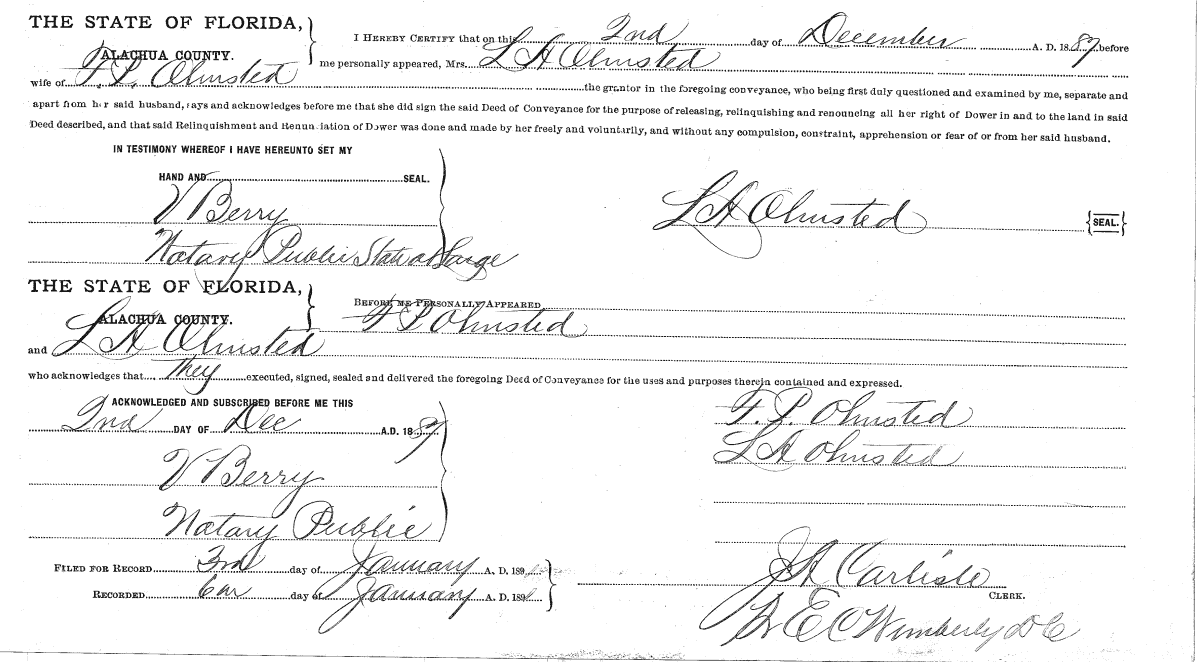 THE STATE OF FLORIDA,
ALACHUA COUNTY.
I HEREBY CERTIFY that on this 2nd day of December A. D. 1889, before
me personally appeared, Mrs. L A Olmsted
wife of F. P. Olmsted the grantor in the foregoing conveyance, who being first duly questioned and examined by me, separate and
apart from her said husband, says and acknowledges before me that she did sign the said Deed of Conveyance for the purpose of releasing, relinquishing and renouncing all her right of Dower in and to the land in said
Deed described, and that said Relinquishment and Renunciation of Dower was done and made by her freely and voluntarily, and without any compulsion, constraint, apprehension or fear of or from her said husband.
IN TESTIMONY WHEREOF I HAVE HEREUNTO SET MY
HAND AND SEAL.
V Berry
L A Olmsted {SEAL.}
Notary Public State at Large
THE STATE OF FLORIDA,
ALACHUA COUNTY.
BEFORE ME PERSONALLY APPEARED
F P Olmsted
and L A Olmsted
who acknowledges that They executed, signed, sealed and delivered the foregoing Deed of Conveyance for the uses and purposes therein contained and expressed.
ACKNOWLEDGED AND SUBSCRIBED BEFORE ME THIS
2nd DAY OF Dec A.D. 1889
F. P. Olmsted
L A Olmsted
V Berry
Notary Public
FILED FOR RECORD 3rd day of January A, D. 189
RECORDED day of January A, D. 189
J A Carlisle
CLERK.
E C Wimberly D C